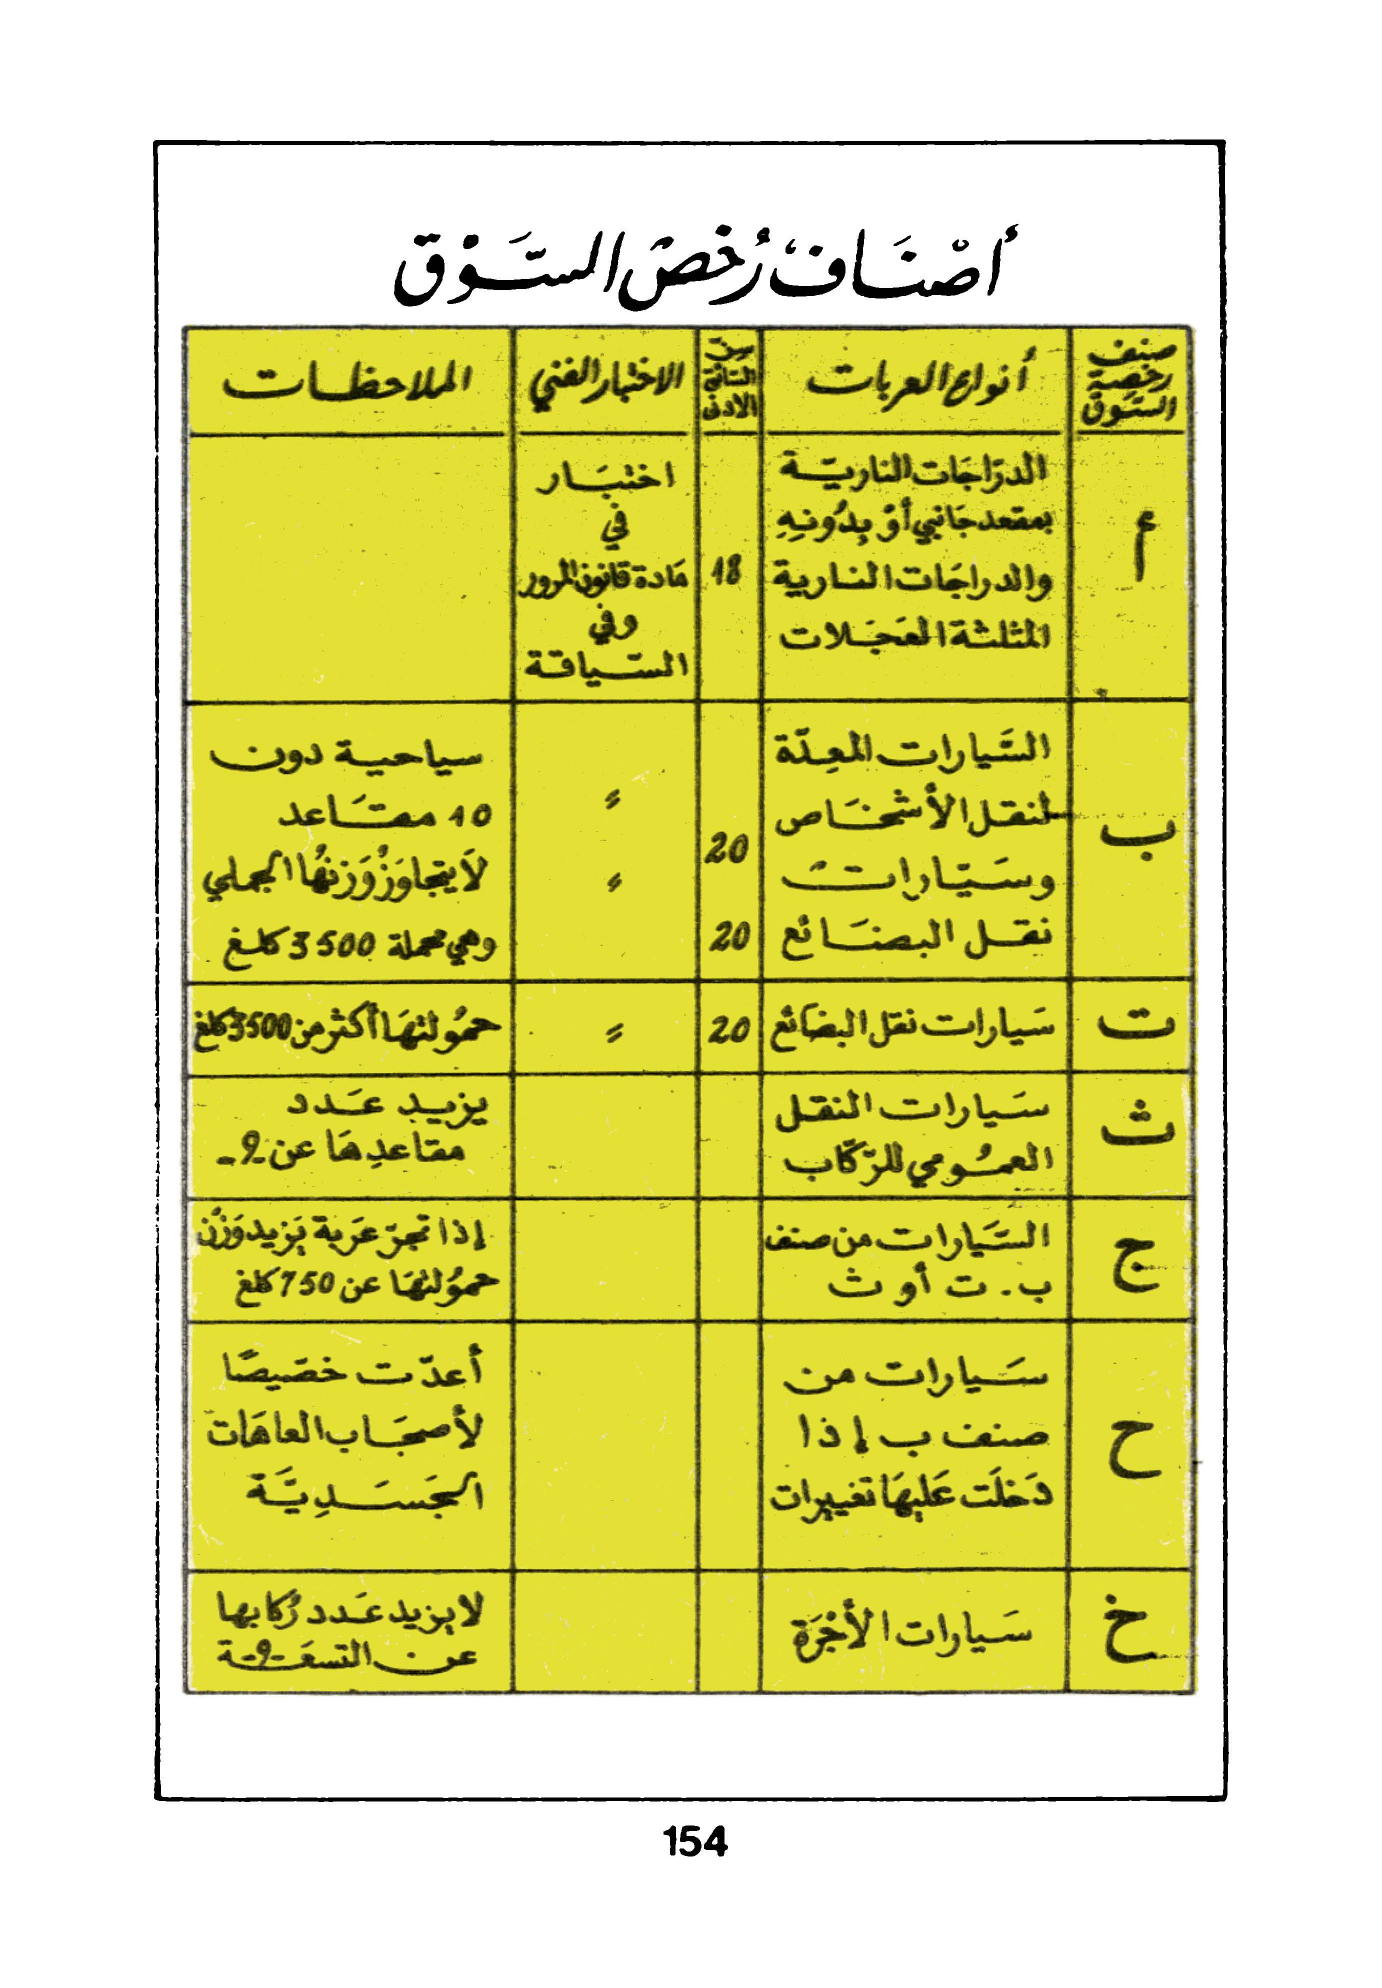 أصْنَاف رُخَص السَّوْق
صنف
رخصة
السَّوق
أنواع العربات
سن
السّائق
الأدنى
الاختبار الفني
الملاحظات
أ
الدرّاجَات الناريّة
بمقعد جَانبي أوْ بِدُونِهِ
والدراجَات النارية
المثلثة العَجَلات
18
اختبَار
في
مَادة قانون المرور
وفي
السّياقة
ب
السَّيارات المعِدّة
لنقل الأشخَاص
وسَيّارات
نقل البضَائع
20
20
〃
〃
سياحية دون
10 مقَاعد
لاَ يتجاوَزُ وَزنهُا الجملي
وهي محملة 3500 كلغ
ت
سَيارات نقل البضَائع
20
〃
حموُلتهَا أكثر من 3500 كلغ
ث
سَيارات النقل
العموُمي للرّكّاب
يزيد عَدد
مقاعدِهَا عن -9-
ج
السَّيَارات من صنف
ب . ت أو ث
إذا تجرّ عَربة يَزيد وَزْن
حموُلتهَا عن 750 كلغ
ح
سَيارات من
صنف ب إذا
دَخلَت عَليهَا تغييرات
أعدّت خصّيصًا
لأصحَاب العاهَات
الجَسَدِيَّة
خ
سَيارات الأُجْرَة
لا يزيد عَدد رُكابها
عن التسعَة -9-
154